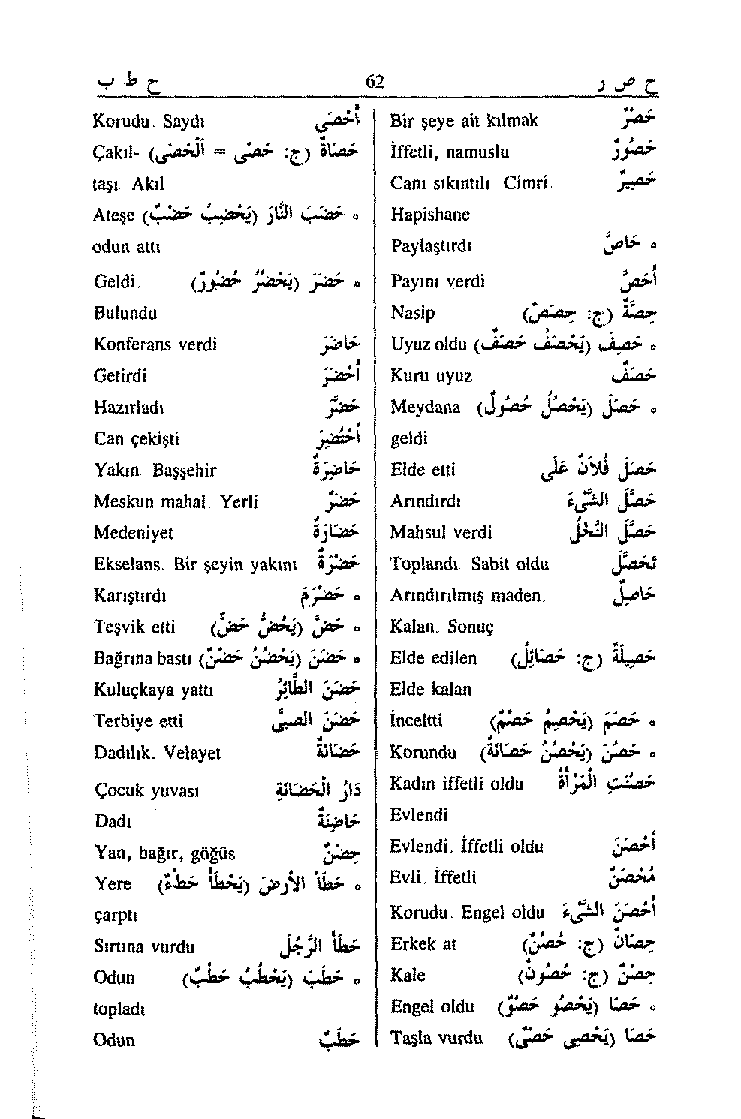 ح ص ر 62 ح ط ب
Bir şeye ait kılmak حَصْرٌ
İffetli, namuslu حَصُورٌ
Canı sıkıntılı Cimri. حَصِيرٌ
Hapishane
Paylaştırdı حَاصَّ ه
Payını verdi أَحَصَّ
Nasip حِصَّةٌ (ج: حِصَصٌ)
Uyuz oldu حَصِفَ (يَحْصَفُ حَصَفٌ) ه
Kuru uyuz حَصَفٌ
Meydana حَصَلَ (يَحْصُلُ حُصُولٌ) ه
geldi
Elde etti حَصَلَ فُلَانٌ عَلَى
Arındırdı حَصَّلَ الشَّيْءَ
Mahsul verdi حَصَّلَ النَّخْلُ
Toplandı. Sabit oldu تَحَصَّلَ
Arındırılmış maden. حَاصِلٌ
Kalan. Sonuç
Elde edilen حَصِيلَةٌ (ج: حَصَائِلُ)
Elde kalan
İnceltti حَصَمَ (يَحْصِمُ حَصْمٌ) ه
Korundu حَصُنَ (يَحْصُنُ حَصَانَةٌ) ه
Kadın iffetli oldu حَصُنَتِ الْمَرْأَةُ
Evlendi
Evlendi. İffetli oldu أَحْصَنَ
Evli. İffetli مُحْصَنٌ
Korudu. Engel oldu أَحْصَنَ الشَّيْءَ
Erkek at حِصَانٌ (ج: حُصُنٌ)
Kale حِصْنٌ (ج: حُصُونٌ)
Engel oldu حَصَا (يَحْصُو حَصْوٌ) ه
Taşla vurdu حَصَا (يَحْصِي حَصْيٌ)
Korudu. Saydı أَحْصَى
Çakıl- حَصَاةٌ (ج: حَصًى = اَلْحَصَى)
taşı. Akıl
Ateşe حَضَبَ النَّارَ (يَحْضِبُ حَضْبٌ) ه
odun attı
Geldi. حَضَرَ (يَحْضُرُ حُضُورٌ) ه
Bulundu
Konferans verdi حَاضَرَ
Getirdi أَحْضَرَ
Hazırladı حَضَّرَ
Can çekişti أُحْتُضِرَ
Yakın. Başşehir حَاضِرَةٌ
Meskun mahal. Yerli حَضَرٌ
Medeniyet حَضَارَةٌ
Ekselans. Bir şeyin yakını حَضْرَةٌ
Karıştırdı حَضْرَمَ ه
Teşvik etti حَضَّ (يَحُضُّ حَضٌّ) ه
Bağrına bastı حَضَنَ (يَحْضُنُ حَضْنٌ) ه
Kuluçkaya yattı حَضَنَ الطَّائِرُ
Terbiye etti حَضَنَ الصَّبِيَّ
Dadılık. Velayet حَضَانَةٌ
Çocuk yuvası دَارُ الْحَضَانَةِ
Dadı حَاضِنَةٌ
Yan, bağır, göğüs حِضْنٌ
Yere حَطَأَ الْأَرْضَ (يَحْطَأُ حَطْءٌ) ه
çarptı
Sırtına vurdu حَطَأَ الرَّجُلَ
Odun حَطَبَ (يَحْطِبُ حَطْبٌ) ه
topladı
Odun حَطَبٌ